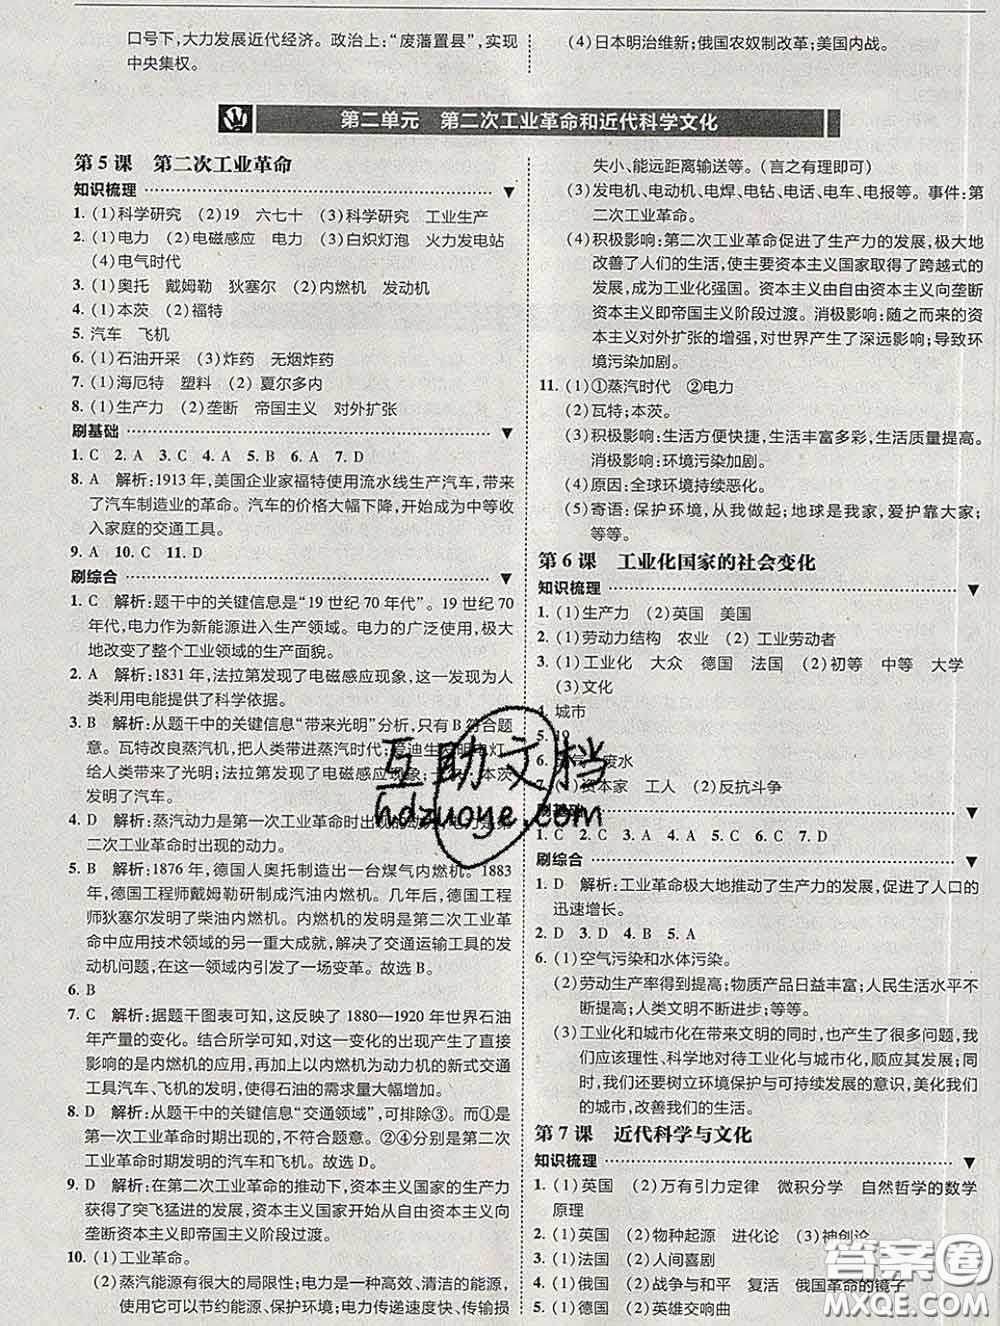 口号下,大力发展近代经济。政治上:“废藩置县”,实现
中央集权。
(4)日本明治维新;俄国农奴制改革;美国内战。
第二单元 第二次工业革命和近代科学文化
第 5 课 第二次工业革命
知识梳理
1. (1)科学研究 (2)19 六七十 (3)科学研究 工业生产
2. (1)电力 (2)电磁感应 电力 (3)白炽灯泡 火力发电站
(4)电气时代
3. (1)奥托 戴姆勒 狄塞尔 (2)内燃机 发动机
4. (1)本茨 (2)福特
5. 汽车 飞机
6. (1)石油开采 (3)炸药 无烟炸药
7. (1)海厄特 塑料 (2) 夏尔多内
8. (1)生产力 (2)垄断 帝国主义 对外扩张
刷基础
1. C 2. A 3. C 4. A 5. A 6. A 7. D
8. A 解析:1913 年,美国企业家福特使用流水线生产汽车,带来
了汽车制造业的革命。汽车的价格大幅下降,开始成为中等收
入家庭的交通工具。
9. A 10. C 11. D
刷综合
1. C 解析:题干中的关键信息是“19 世纪 70 年代”。19 世纪 70
年代,电力作为新能源进入生产领域。电力的广泛使用,极大
地改变了整个工业领域的生产面貌。
2. A 解析:1831 年,法拉第发现了电磁感应现象,这一发现为人
类利用电能提供了科学依据。
3. B 解析:从题干中的关键信息“带来光明”分析,只有 B 符合题
意。瓦特改良蒸汽机,把人类带进蒸汽时代;爱迪生发明电灯,
给人类带来了光明;法拉第发现了电磁感应现象;卡尔·本茨
发明了汽车。
4. D 解析:蒸汽动力是第一次工业革命时出现的动力,电力是第
二次工业革命时出现的动力。
5. B 解析:1876 年,德国人奥托制造出一台煤气内燃机。1883
年,德国工程师戴姆勒研制成汽油内燃机。几年后,德国工程
师狄塞尔发明了柴油内燃机。内燃机的发明是第二次工业革
命中应用技术领域的另一重大成就,解决了交通运输工具的发
动机问题,在这一领域内引发了一场变革。故选 B。
6. B
7. C 解析:据题干图表可知,这反映了 1880—1920 年世界石油
年产量的变化。结合所学可知,对这一变化的出现产生了直接
影响的是内燃机的应用,再加上以内燃机为动力机的新式交通
工具汽车、飞机的发明,使得石油的需求量大幅增加。
8. D 解析:从题干中的关键信息“交通领域”,可排除③。而①是
第一次工业革命时期出现的,不符合题意。②④分别是第二次
工业革命时期发明的汽车和飞机。故选 D。
9. D 解析:在第二次工业革命的推动下,资本主义国家的生产力
获得了突飞猛进的发展,资本主义国家开始从自由资本主义向
垄断资本主义即帝国主义阶段过渡。
10. (1)工业革命。
(2)蒸汽能源有很大的局限性;电力是一种高效、清洁的能源,
使用它可以节约能源、保护环境;电力传递速度快、传输损
失小、能远距离输送等。(言之有理即可)
(3)发电机、电动机、电焊、电钻、电话、电车、电报等。事件:第
二次工业革命。
(4)积极影响:第二次工业革命促进了生产力的发展,极大地
改善了人们的生活,使主要资本主义国家取得了跨越式的
发展,成为工业化强国。资本主义由自由资本主义向垄断
资本主义即帝国主义阶段过渡。消极影响:随之而来的资
本主义对外扩张的增强,对世界产生了深远影响;导致环
境污染加剧。
11. (1)①蒸汽时代 ②电力
(2)瓦特;本茨。
(3)积极影响:生活方便快捷,生活丰富多彩,生活质量提高。
消极影响:环境污染加剧。
(4)原因:全球环境持续恶化。
(5)寄语:保护环境,从我做起;地球是我家,爱护靠大家;
等等。
第 6 课 工业化国家的社会变化
知识梳理
1. (1)生产力 (2)英国 美国
2. (1)劳动力结构 农业 (2) 工业劳动者
3. (1)工业化 大众 德国 法国 (2)初等 中等 大学
(3)文化
4. 城市
5. 19
6. 废水
7. (1)资本家 工人 (2)反抗斗争
刷基础
1. C 2. C 3. C 4. A 5. C 6. C 7. D
刷综合
1. D 解析:工业革命极大地推动了生产力的发展,促进了人口的
迅速增长。
2. D 3. D 4. B 5. A
6. (1)空气污染和水体污染。
(2)劳动生产率得到提高;物质产品日益丰富;人民生活水平不
断提高;人类文明不断进步;等等。
(3)工业化和城市化在带来文明的同时,也产生了很多问题,我
们应该理性、科学地对待工业化与城市化,顺应其发展;同
时,我们还要树立环境保护与可持续发展的意识,美化我们
的城市,改善我们的生活。
第 7 课 近代科学与文化
知识梳理
1. (1)英国 (2)万有引力定律 微积分学 自然哲学的数学
原理
2. (1)英国 (2)物种起源 进化论 (3)神创论
3. (1)法国 (2)人间喜剧
4. (1)俄国 (2)战争与和平 复活 俄国革命的镜子
5. (1)德国 (2)英雄交响曲
互助文档
hdzuoye.com
答案圈
MXQE.COM